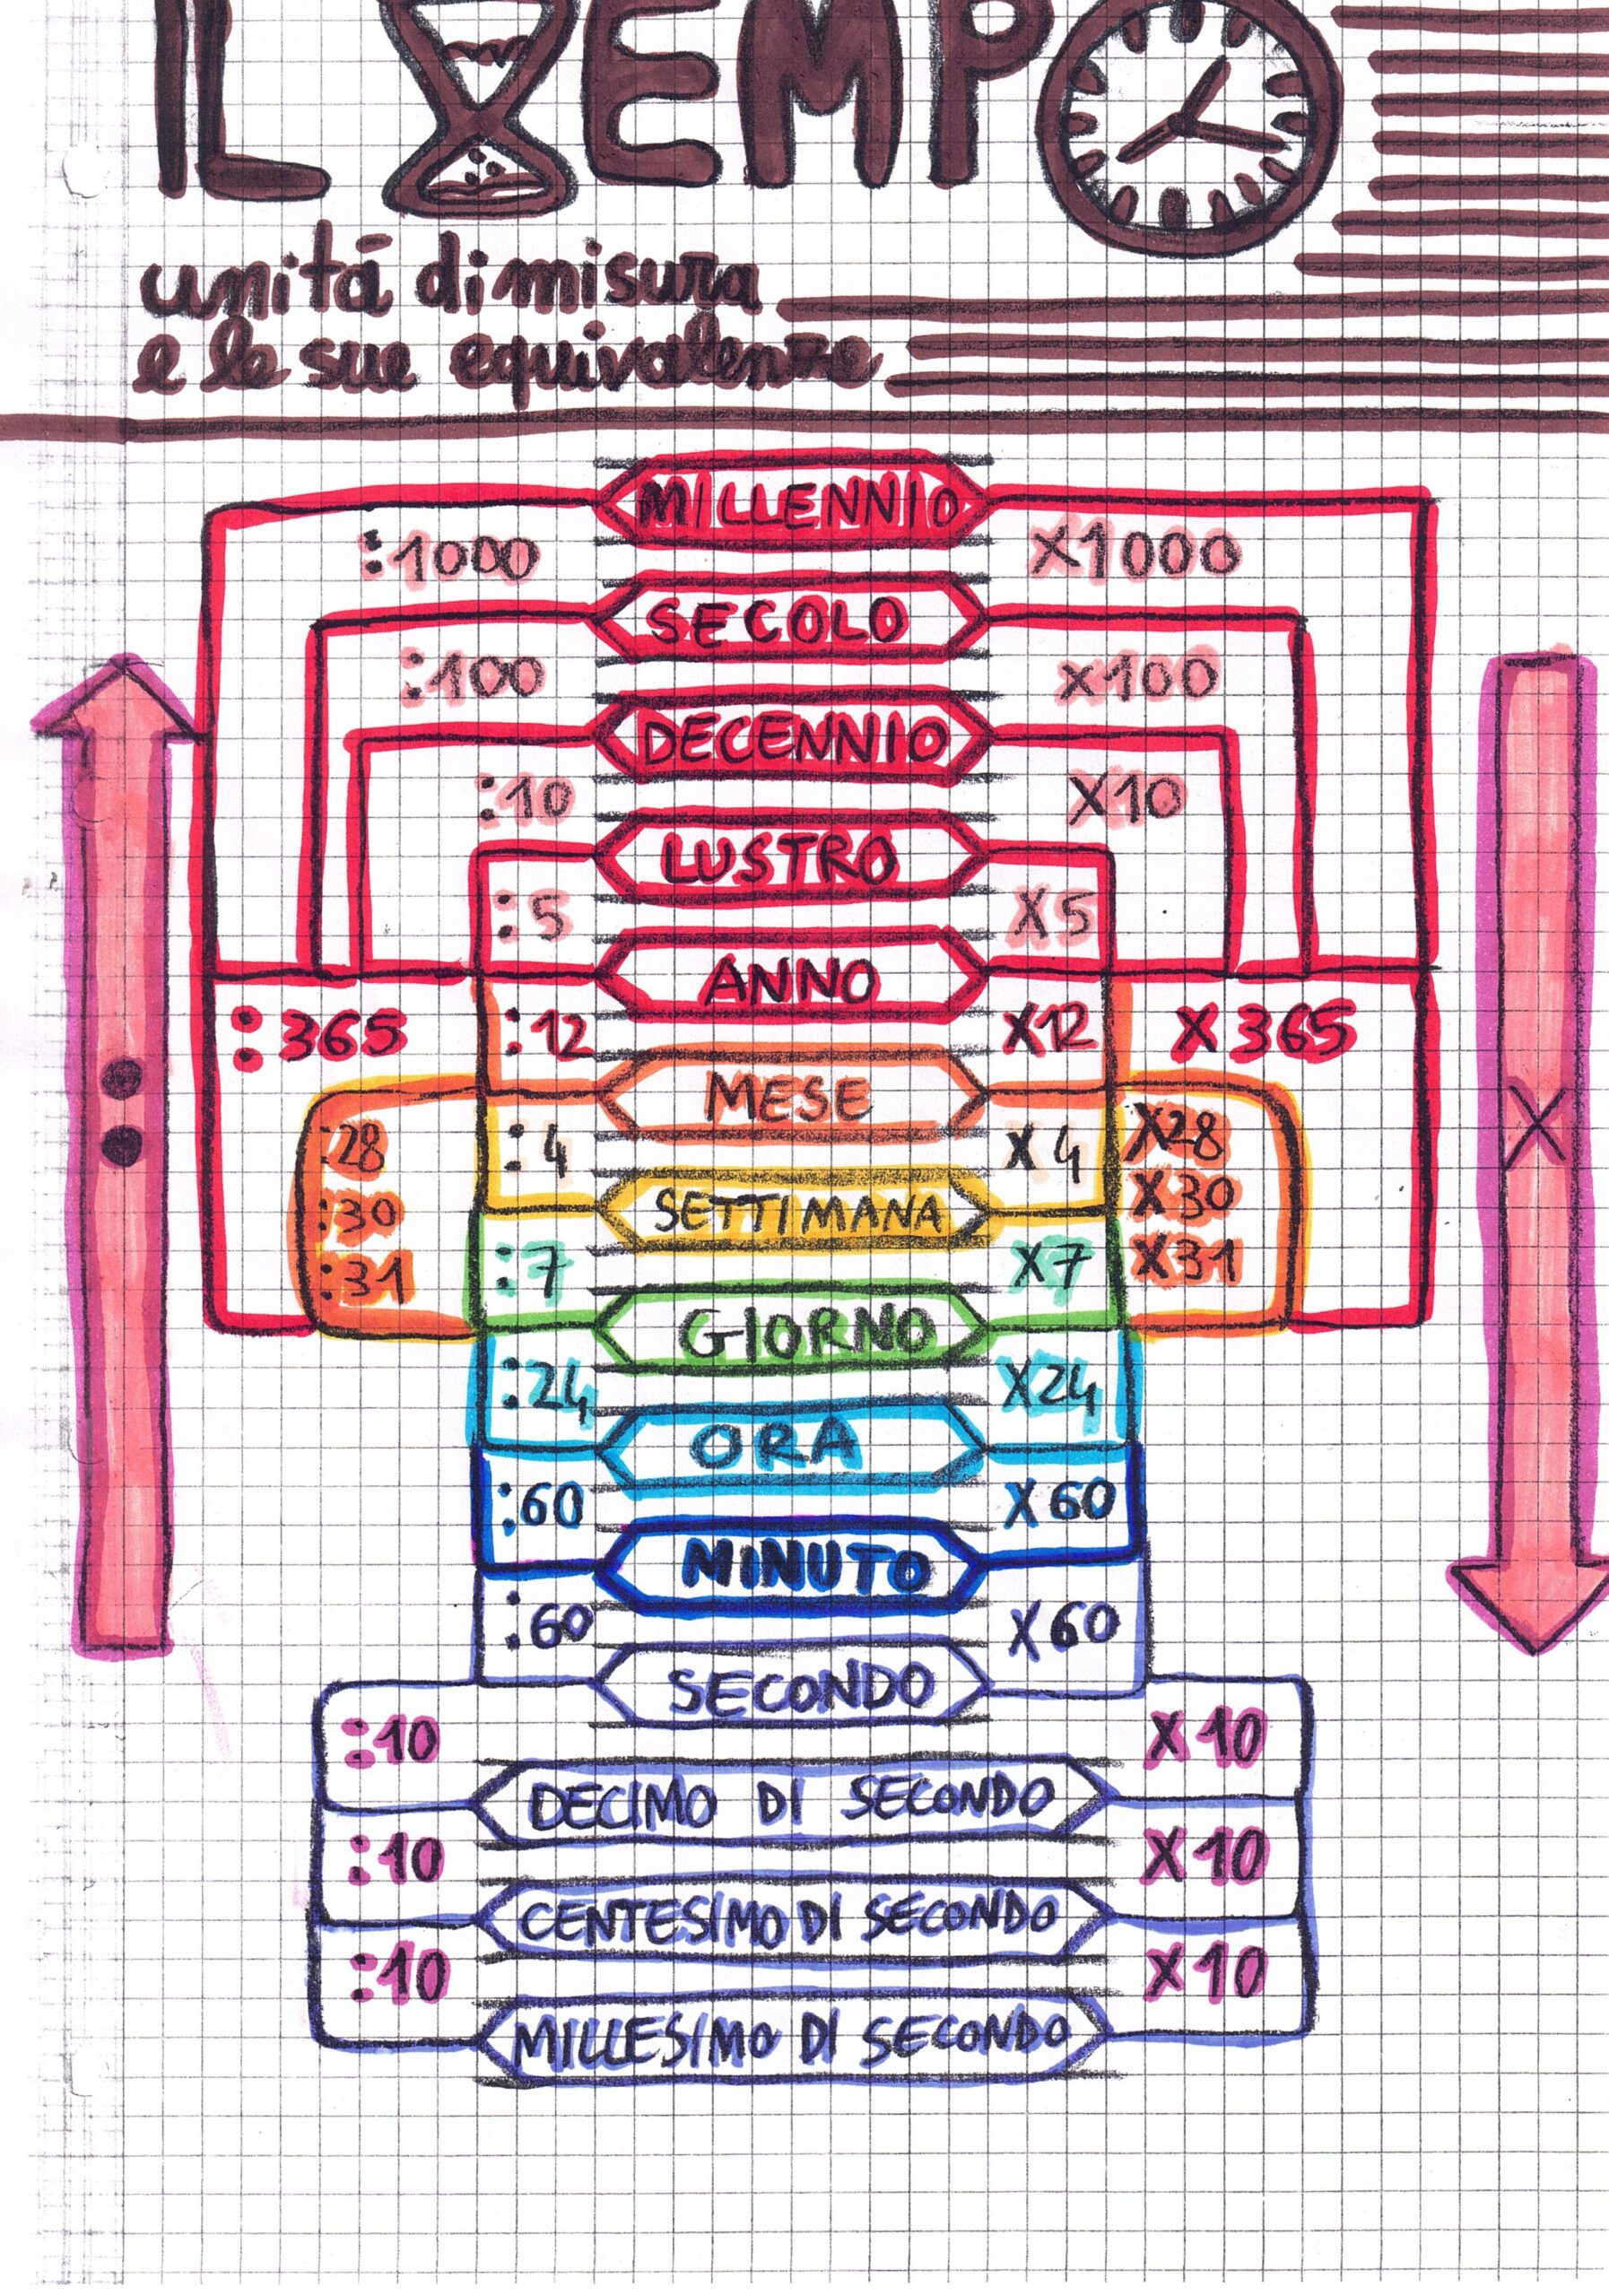 IL TEMPO
unitá di misura
e le sue equivalenze
MILLENNIO
:1000 X1000
SECOLO
:100 X100
DECENNIO
:10 X10
LUSTRO
:5 X5
ANNO
:365 :12 X12 X365
MESE
:28 :4 X4 X28
:30 X30
SETTIMANA
:31 :7 X7 X31
GIORNO
:24 X24
ORA
:60 X60
MINUTO
:60 X60
SECONDO
:10 X10
DECIMO DI SECONDO
:10 X10
CENTESIMO DI SECONDO
:10 X10
MILLESIMO DI SECONDO
:
X